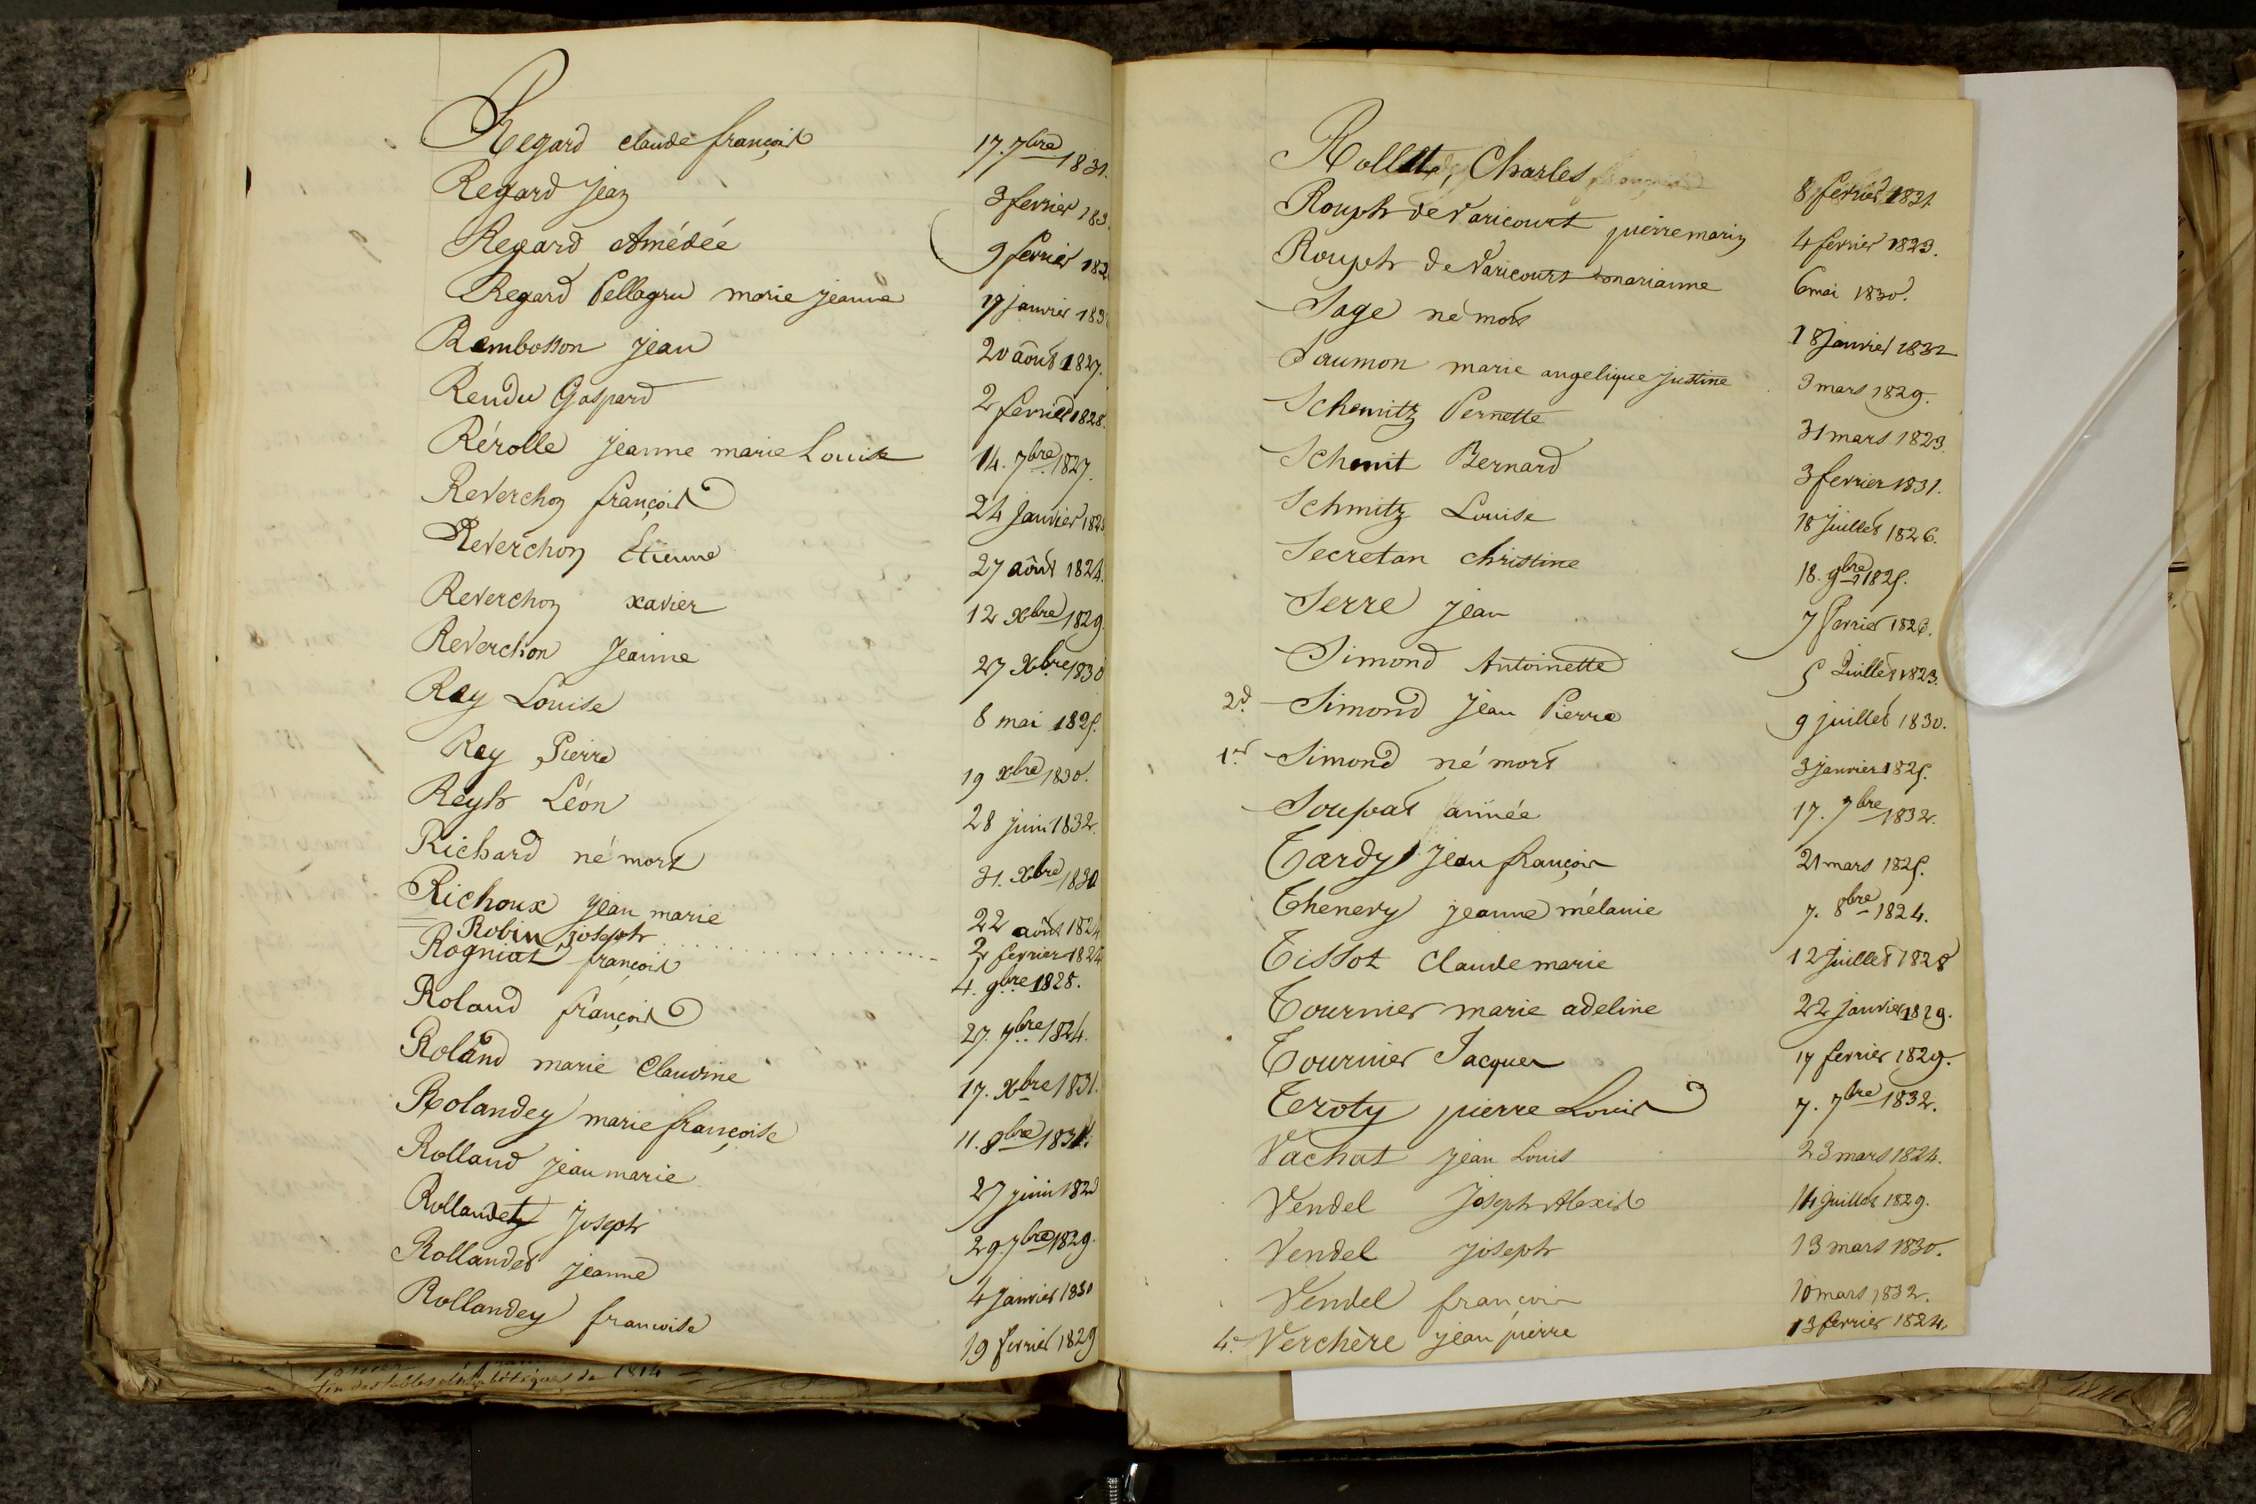 Regard claude françois 17. 7bre 1831.
Regard Jean 3 fevrier 183
Regard Amédée 9 fevrier 182
Regard Pellagru marie jeanne 19 janvier 183
Rambosson jean 20 août 1827.
Rendu Gaspard 2 fevrier 1828.
Rérolle jeanne marie Louise 14. 7bre 1827.
Reverchon françois 24 janvier 182
Reverchon Etienne 27 août 1824.
Reverchon xavier 12 xbre 1829.
Reverchon Jeanne 27 xbre 1830
Rey Louise 8 mai 1825.
Rey Pierre 19 xbre 1830.
Reyh Léon 28 juin 1832.
Richard né mort 31. xbre 1830
Richoux jean marie 22 août 1824
Robin joseph 2 fevrier 1824
Rogniat françois 4. 9bre 1828.
Roland françois 27. 7bre 1824.
Roland marie Claudine 17. xbre 1831.
Rolandey marie françoise 11. 8bre 1831.
Rolland jean marie 27 juin 182
Rollandet Joseph 29. 7bre 1829.
Rollandet jeanne 4 janvier 1830
Rollandey francoise 19 fevrier 1829
fin des tables alphabétiques de 1814
Rollet, Charles 8 fevrier 1821
Rouph de Varicourt pierre marin 4 fevrier 1823.
Rouph de Varicourt marianne 6 mai 1830.
Sage né mort 18 janvier 1832
Saumon marie angelique justine 3 mars 1829.
Schemitz Pernette 31 mars 1823.
Schemit Bernard 3 fevrier 1831.
Schmitz Louise 18 juillet 1826.
Secretan christine 18. 9bre 1825.
Serre jean 7 fevrier 1826.
Simond Antoinette 5 Juillet 1823.
2d. Simond Jean Pierre 9 juillet 1830.
1er Simond né mort 3 janvier 1825.
Soupat aimée 17. 7bre 1832.
Tardy Jean françois 21 mars 1825.
Thenevy jeanne mélanie 7. 8bre 1824.
Tissot Claude marie 12 juillet 1828
Tournier marie adeline 22 janvier 1829.
Tournier Jacques 17 fevrier 1829.
Teroty pierre Louis 7. 7bre 1832.
Vachat jean Louis 23 mars 1824.
Vendel Joseph Alexis 14 juillet 1829.
Vendel joseph 13 mars 1830.
Vendel françois 10 mars 1832.
4e Verchère jean pierre 13 fevrier 1824.